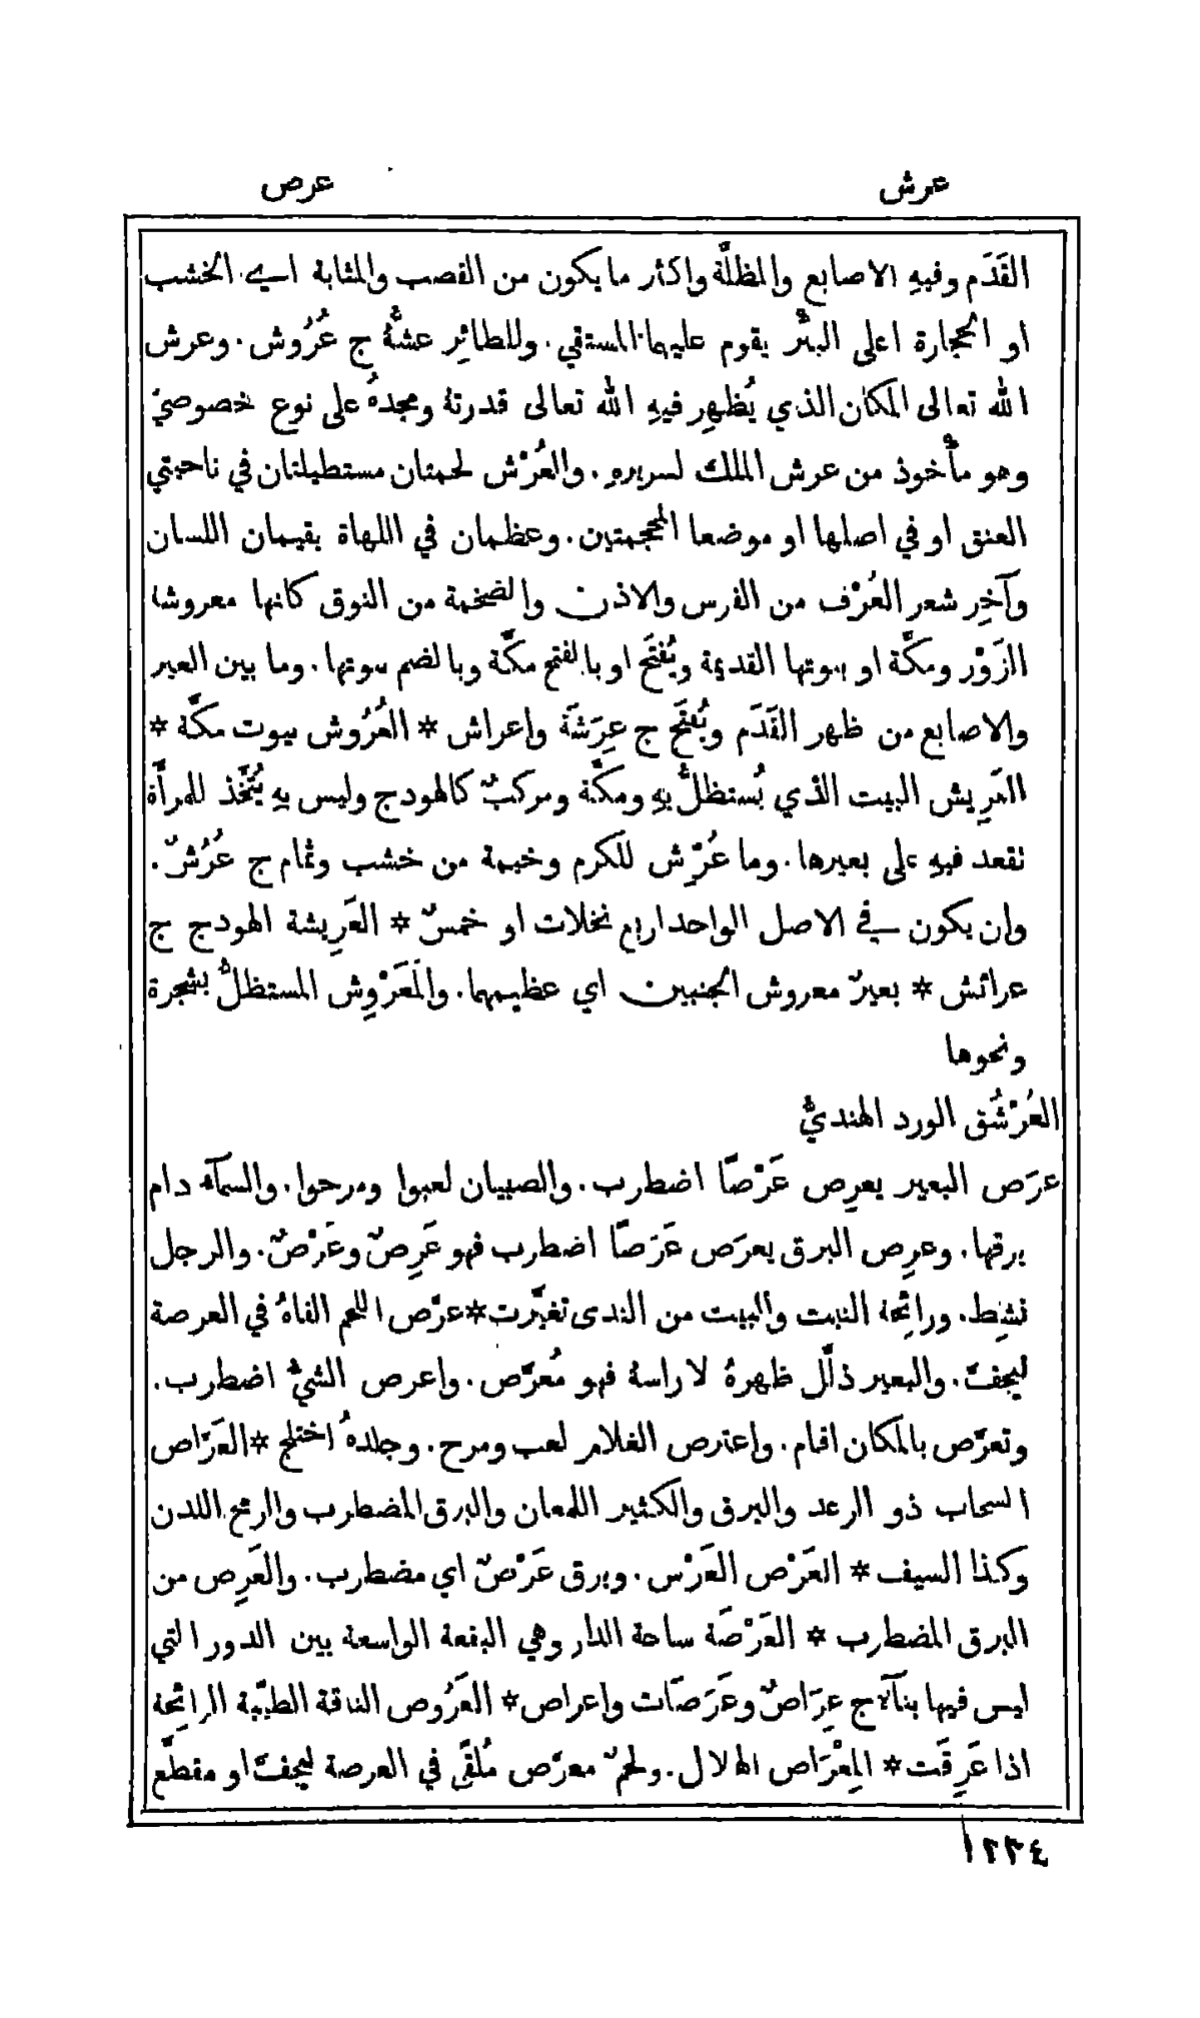 عرش
عرص
القَدَم وفيهِ الاصابع والمظلَّة واكثر ما يكون من القصب والمثابة اي الخشب
او الحجارة اعلى البئر يقوم عليها المستقي. وللطائِر عشُّهُ ج عُرُوش. وعرش
الله تعالى المكان الذي يُظهِر فيهِ الله تعالى قدرتهُ ومجدهُ على نوع خصوصيّ
وهو مأْخوذ من عرش الملك لسريرهِ. والعُرْش لحمتان مستطيلتان في ناحيتي
العنق او في اصلها او موضعا المحجمتين. وعظمان في اللهاة يقيمان اللسان
وآخِر شعر العُرْف من الفرس والاذن والضخمة من النوق كانها معروشة
الزَوْر ومكَّة او بيوتها القديمة ويُفتَح او بالفتح مكَّة وبالضم بيوتها. وما بين العير
والاصابع من ظهر القَدَم ويُفتَح ج عِرَشَة واعراش * العُرُوش بيوت مكَّة *
العَرِيش البيت الذي يُستظلُّ بهِ ومكَّة ومركبٌ كالهودج وليس بهِ يُتَّخَذ للمرأَة
تقعد فيهِ على بعيرها. وما عُرّش للكرم وخيمة من خشب وثمام ج عُرُشٌ.
وان يكون في الاصل الواحد اربع نخلات او خمسٌ * العَرِيشة الهودج ج
عرائش * بعيرٌ معروش الجنبين اي عظيمهما. والمَعَرْوِش المستظلُّ بشجرة
ونحوها
العُرْشُق الورد الهنديُّ
عرَص البعير يعرِص عَرْصًا اضطرب. والصبيان لعبوا ومرحوا. والسمآءُ دام
برقها. وعرِص البرق يعرَص عَرَصًا اضطرب فهو عَرِصٌ وعَرْصٌ. والرجل
نشِط. ورائِحة النبت والبيت من الندى تغيَّرت * عرَّص اللحم القاهُ في العرصة
ليجفَّ. والبعير ذلَّل ظهرهُ لا راسهُ فهو مُعرَّص. واعرص الشيُّ اضطرب.
وتعرَّص بالمكان اقام. واعترص الغلام لعب ومرح. وجلدهُ اختلج * العَرَّاص
السحاب ذو الرعد والبرق والكثير اللمعان والبرق المضطرب والرمح اللدن
وكذا السيف * العَرْص العَرْس. وبرق عَرْصٌ اي مضطرب. والعَرِص من
البرق المضطرب * العَرْصَة ساحة الدار وهي البقعة الواسعة بين الدور التي
ليس فيها بنآءٌ ج عِرَاصٌ وعَرَصَات واعراص * العَرُوص الناقة الطيّبة الرائِحة
اذا عَرِقَت * المِعْرَاص الهلال. ولحمٌ معرَّص مُلقًى في العرصة ليجفَّ او مقطَّع
١٢٣٤